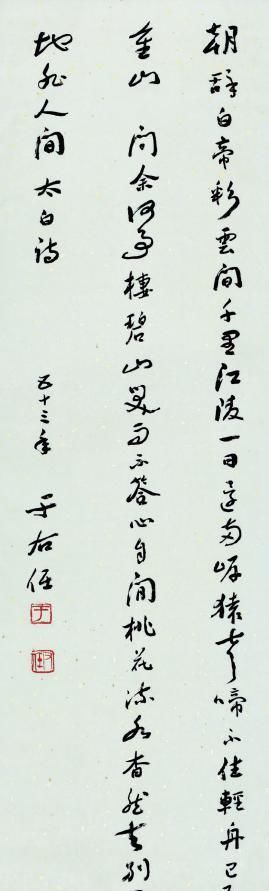 朝辭白帝彩雲間千里江陵一日還兩岸猿聲啼不住輕舟已
重山 問余何事棲碧山笑而不答心自閒桃花流水杳然去別
地非人間 太白詩 五十三年 于右任
于
右任